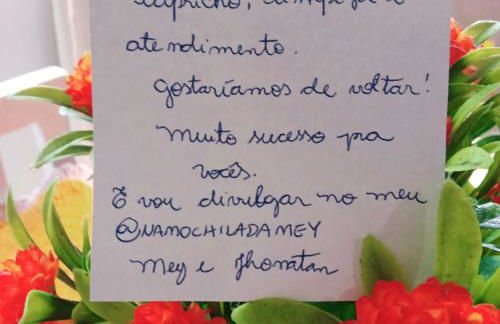 capricho,
atendimento.
Gostaríamos de voltar!
Muito sucesso pra
vocês.
E vou divulgar no meu
@NAMOCHILADAMEY
Mey e Jhonatan